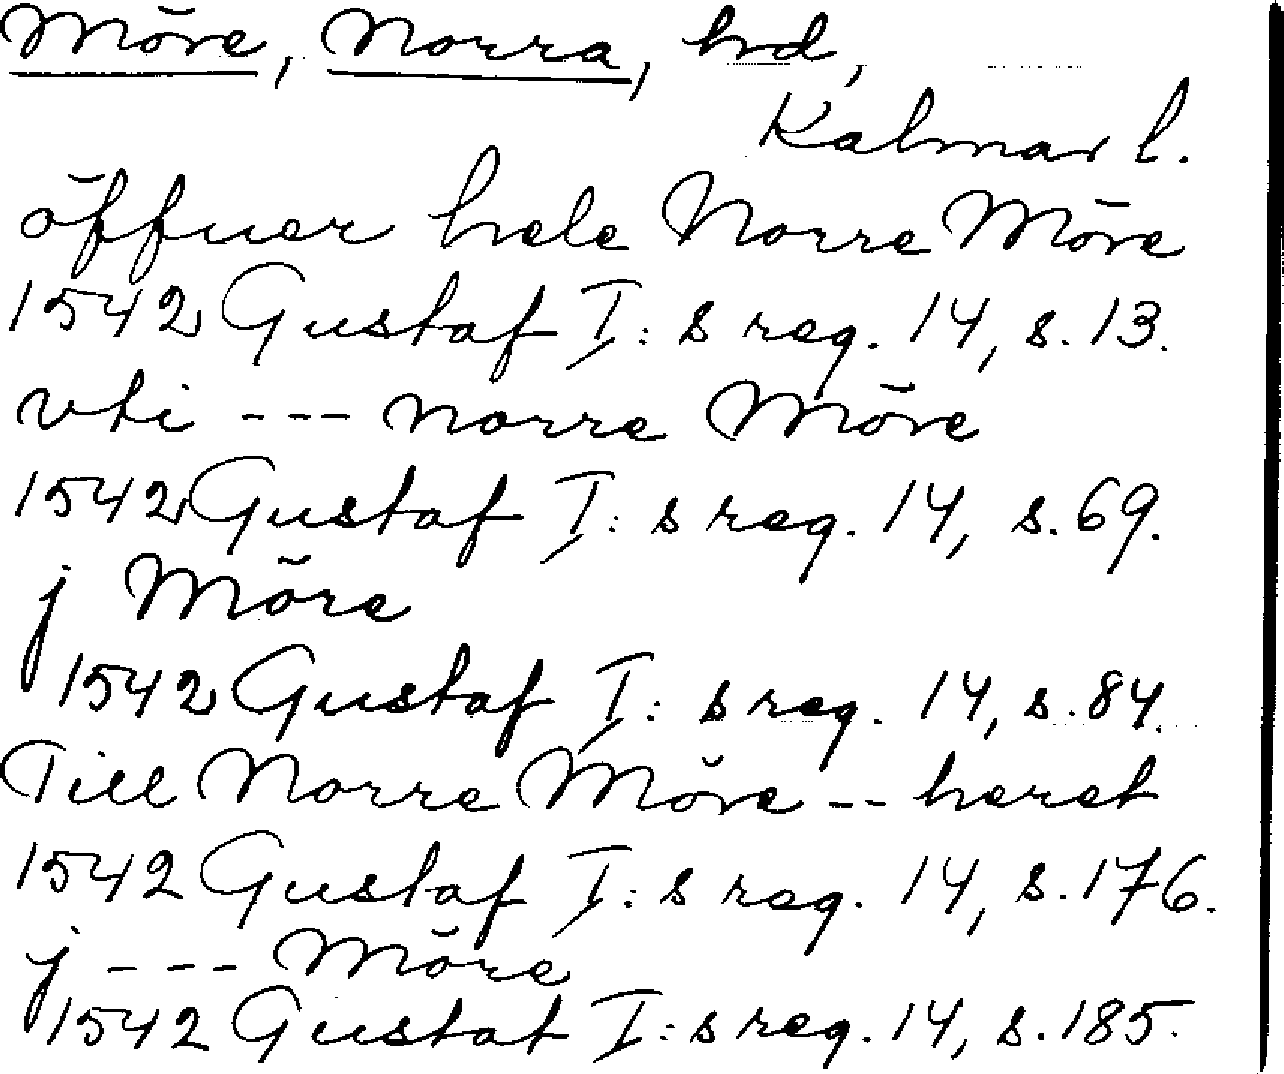 Möre, Norra, hd,
Kalmar l.
öffuer hele Norre Möre
1542 Gustaf I:s reg. 14, s. 13.
vti --- norre Möre
1542 Gustaf I:s reg. 14, s. 69.
j Möre
1542 Gustaf I:s reg. 14, s. 84.
Till Norre Möre -- heret
1542 Gustaf I:s reg. 14, s. 176.
j --- Möre
1542 Gustaf I:s reg. 14, s. 185.